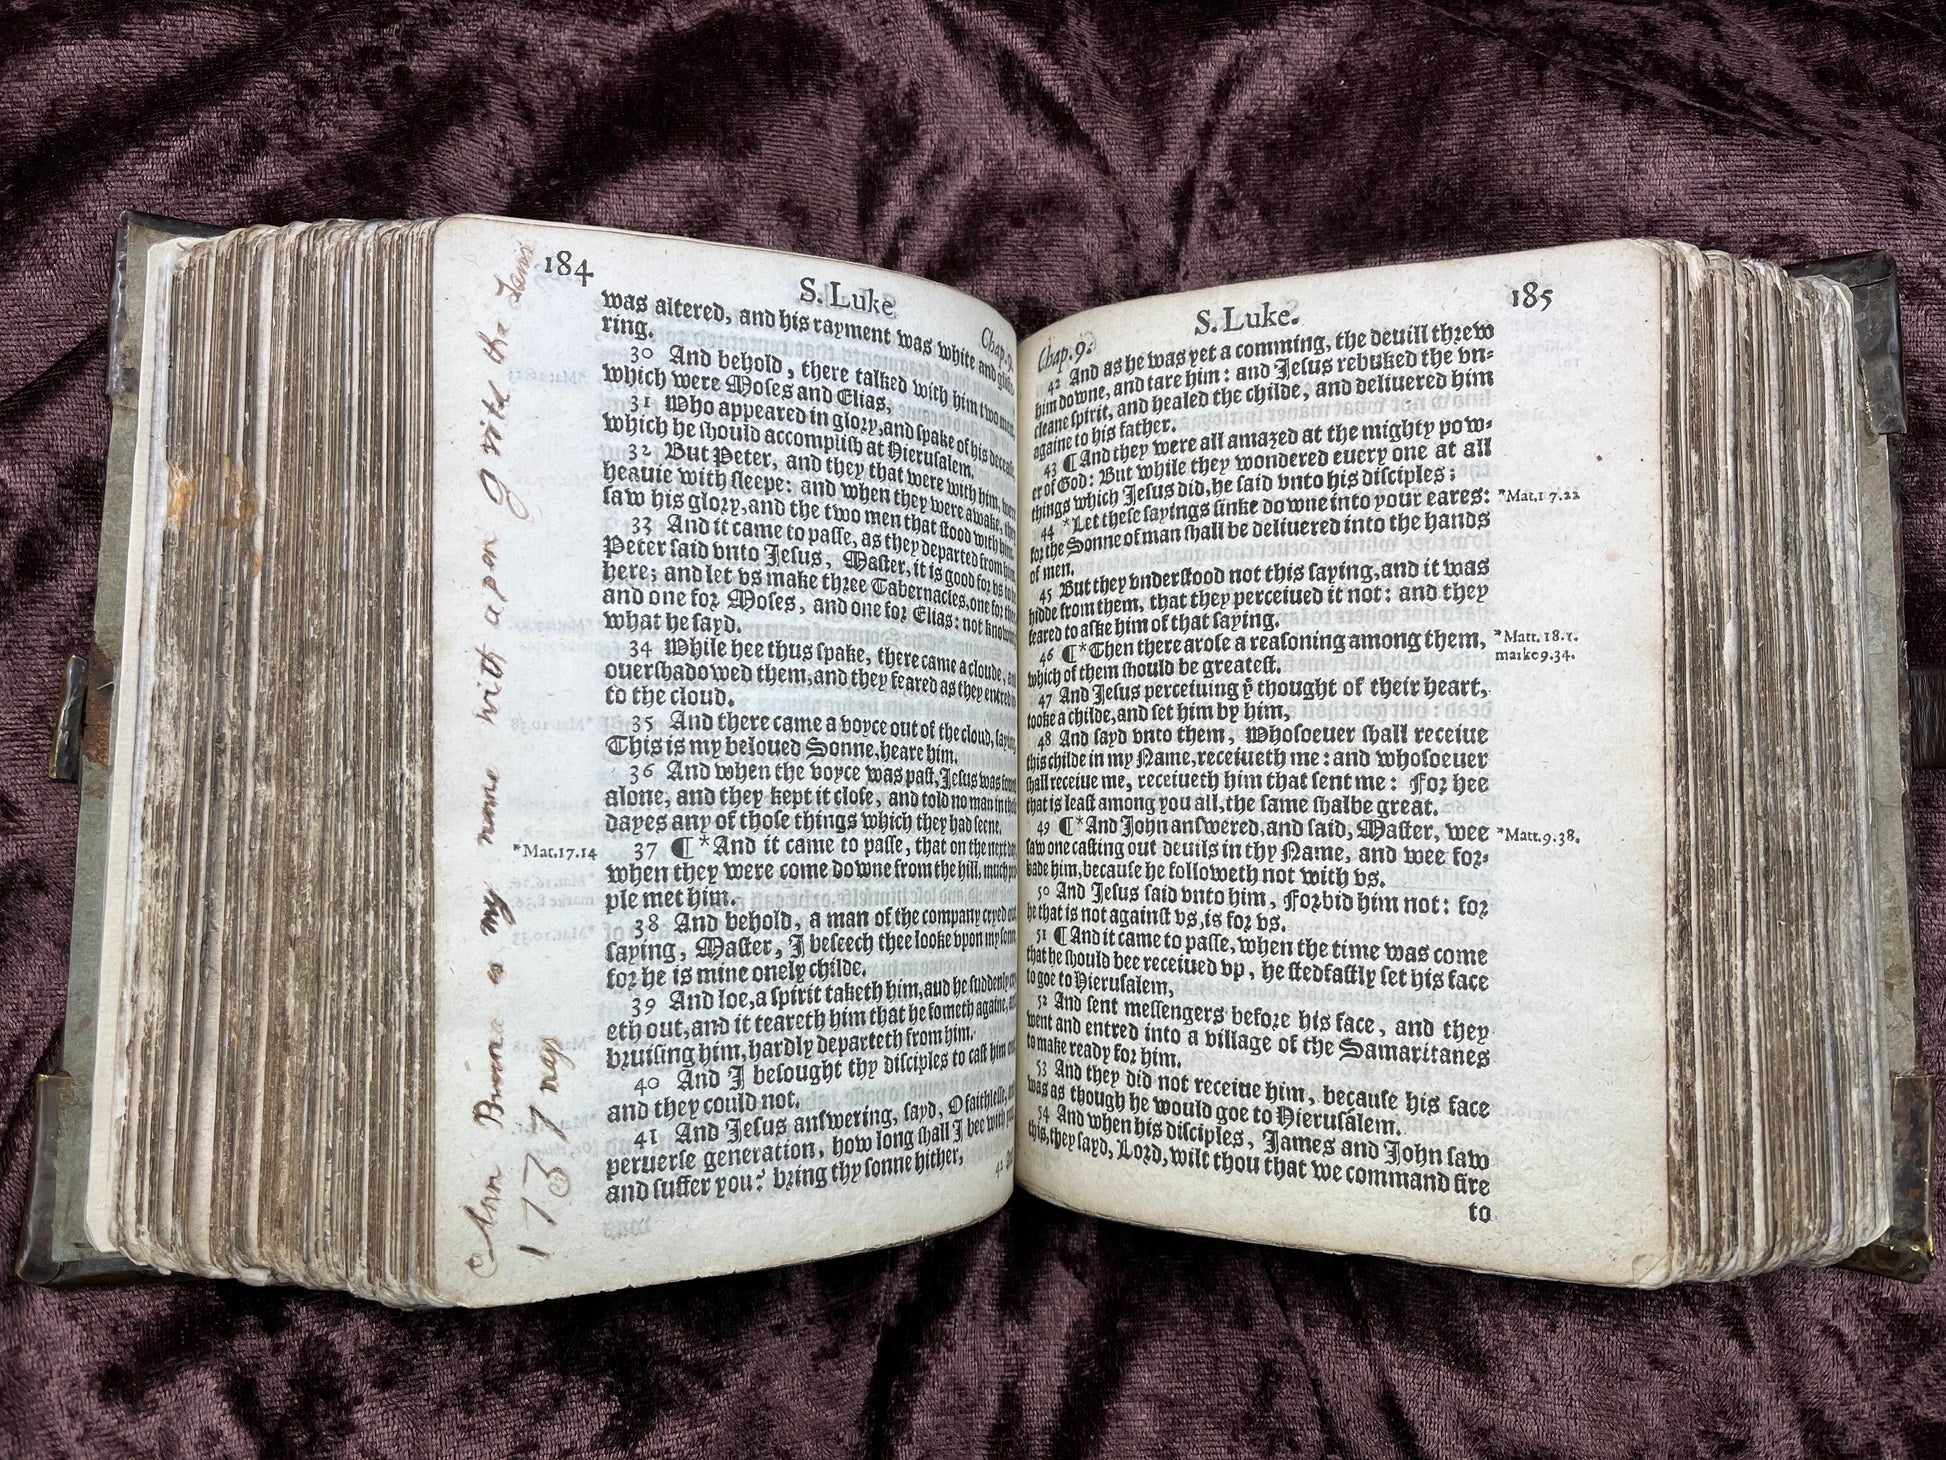 184
S. Luke
Chap. 9.
was altered, and his rayment was white and gliste-
ring.
30 And behold, there talked with him two men,
which were Moses and Elias,
31 Who appeared in glory, and spake of his decease
which he should accomplish at Hierusalem.
32 But Peter, and they that were with him, were
heauie with sleepe: and when they were awake, they
saw his glory, and the two men that stood with him.
33 And it came to passe, as they departed from him
Peter said vnto Jesus, Master, it is good for vs to be
here; and let vs make three Tabernacles, one for thee
and one for Moses, and one for Elias: not knowing
what he sayd.
34 While hee thus spake, there came a cloude, and
ouershadowed them, and they feared as they entred in
to the cloud.
35 And there came a voyce out of the cloud, saying
This is my beloued Sonne, heare him.
36 And when the voyce was past, Jesus was found
alone, and they kept it close, and told no man in those
dayes any of those things which they had seene.
*Mat.17.14
37 ¶ *And it came to passe, that on the next day
when they were come downe from the hill, much peo
ple met him.
38 And behold, a man of the company cryed out
saying, Master, I beseech thee looke vpon my sonne,
for he is mine onely childe.
39 And loe, a spirit taketh him, aud he suddenly cry
eth out, and it teareth him that he fometh againe, and
bruising him, hardly departeth from him.
40 And I besought thy disciples to cast him out
and they could not.
41 And Jesus answering, sayd, O faithlesse, and
peruerse generation, how long shall I bee with you
and suffer you? bring thy sonne hither,
42 And
my name with a pen
1737
185
S. Luke.
Chap. 9.
42 And as he was yet a comming, the deuill threw
him downe, and tare him: and Jesus rebuked the vn-
cleane spirit, and healed the childe, and deliuered him
againe to his father.
43 ¶ And they were all amazed at the mighty pow-
er of God: But while they wondered euery one at all
things which Jesus did, he said vnto his disciples;
44 *Let these sayings sinke downe into your eares:
*Mat.17.22
for the Sonne of man shall be deliuered into the hands
of men.
45 But they vnderstood not this saying, and it was
hidde from them, that they perceiued it not: and they
feared to aske him of that saying.
46 ¶ *Then there arose a reasoning among them,
*Matt. 18.1.
marke 9.34.
which of them should be greatest.
47 And Jesus perceiuing yͤ thought of their heart,
tooke a childe, and set him by him,
48 And sayd vnto them, Whosoeuer shall receiue
this childe in my Name, receiueth me: and whosoeuer
shall receiue me, receiueth him that sent me: For hee
that is least among you all, the same shalbe great.
49 ¶ *And John answered, and said, Master, wee
*Matt.9.38.
saw one casting out deuils in thy Name, and wee for-
bade him, because he followeth not with vs.
50 And Jesus said vnto him, Forbid him not: for
he that is not against vs, is for vs.
51 ¶ And it came to passe, when the time was come
that he should bee receiued vp, he stedfastly set his face
to goe to Hierusalem,
52 And sent messengers before his face, and they
went and entred into a village of the Samaritanes
to make ready for him.
53 And they did not receiue him, because his face
was as though he would goe to Hierusalem.
54 And when his disciples, James and John saw
this, they sayd, Lord, wilt thou that we command fire
to